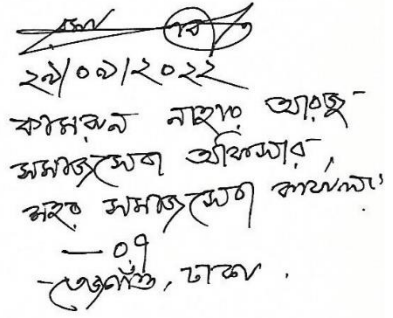 ২৯/০৯/২০২২
কামরুন নাহার আরজু
সমাজসেবা অফিসার,
শহর সমাজসেবা কার্যালয়
— ০৭
তেজগাঁও, ঢাকা.